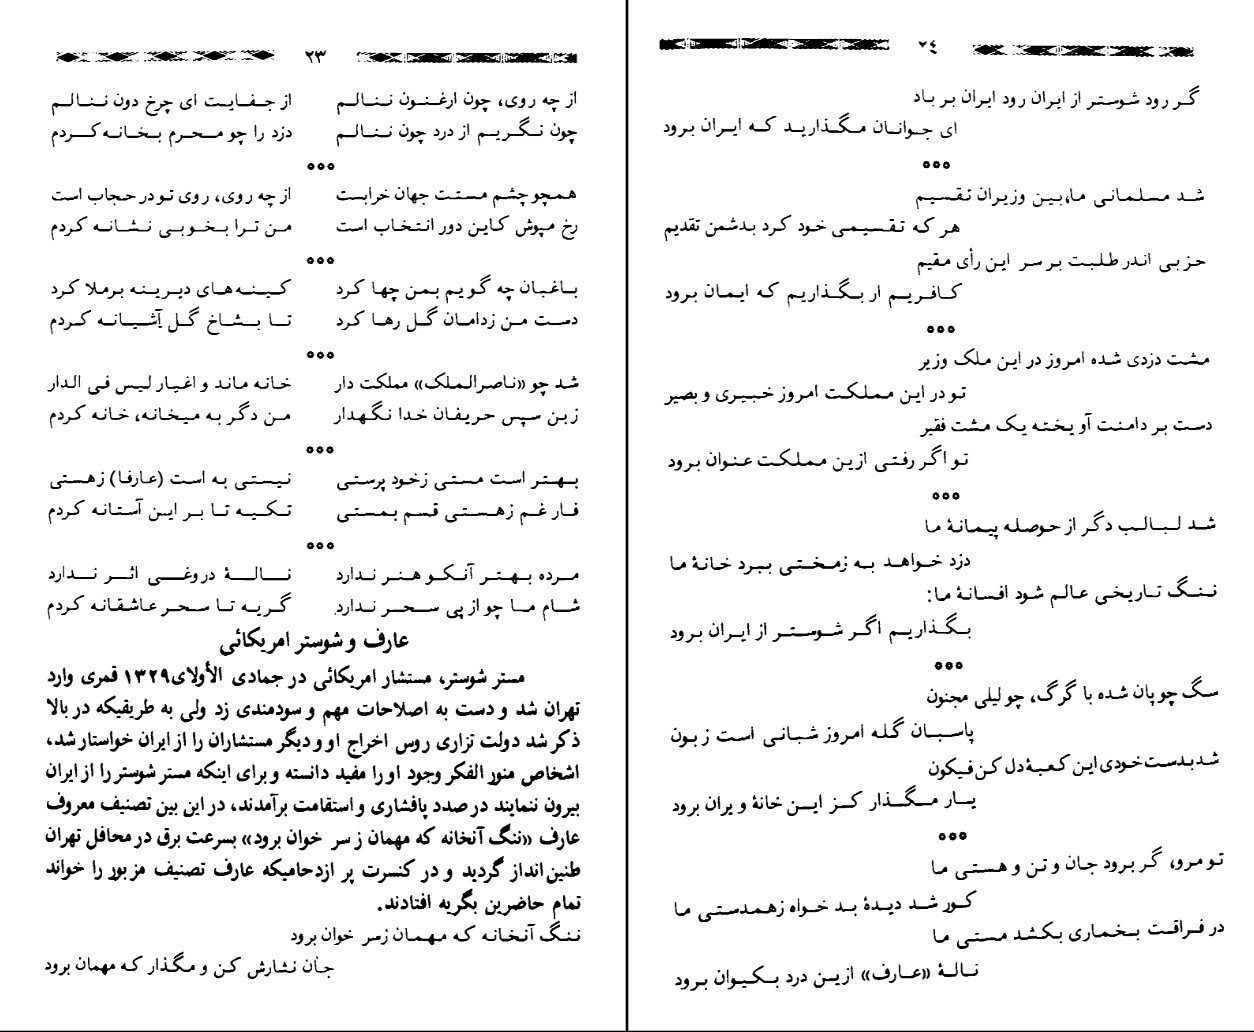 ۲۳
از چه روی، چون ارغنون ننالم از جفایت ای چرخ دون ننالم
چون نگریم از درد چون ننالم دزد را چو محرم بخانه کردم
***
همچو چشم مستت جهان خرابست از چه روی، روی تو در حجاب است
رخ مپوش کاین دور انتخاب است من ترا بخوبی نشانه کردم
***
باغبان چه گویم بمن چها کرد کینه‌های دیرینه برملا کرد
دست من زدامان گل رها کرد تا بشاخ گل آشیانه کردم
***
شد چو «ناصرالملک» مملکت دار خانه ماند و اغیار لیس فی الدار
زین سپس حریفان خدا نگهدار من دگر به میخانه، خانه کردم
***
بهتر است مستی زخود پرستی نیستی به است (عارفا) زهستی
فارغم زهستی قسم بمستی تکیه تا بر این آستانه کردم
***
مرده بهتر آنکو هنر ندارد نالهٔ دروغی اثر ندارد
شام ما چو از پی سحر ندارد گریه تا سحر عاشقانه کردم
عارف و شوستر امریکائی
مستر شوستر، مستشار امریکائی در جمادی الأولای ۱۳۲۹ قمری وارد
تهران شد و دست به اصلاحات مهم و سودمندی زد ولی به طریقیکه در بالا
ذکر شد دولت تزاری روس اخراج او و دیگر مستشاران را از ایران خواستار شد،
اشخاص منور الفکر وجود او را مفید دانسته و برای اینکه مستر شوستر را از ایران
بیرون ننمایند در صدد پافشاری و استقامت برآمدند، در این بین تصنیف معروف
عارف «ننگ آنخانه که مهمان ز سر خوان برود» بسرعت برق در محافل تهران
طنین انداز گردید و در کنسرت پر ازدحامیکه عارف تصنیف مزبور را خواند
تمام حاضرین بگریه افتادند.
ننگ آنخانه که مهمان زسر خوان برود
جان نثارش کن و مگذار که مهمان برود
۲٤
گر رود شوستر از ایران رود ایران بر باد
ای جوانان مگذارید که ایران برود
***
شد مسلمانی ما، بین وزیران تقسیم
هر که تقسیمی خود کرد بدشمن تقدیم
حزبی اندر طلبت بر سر این رأی مقیم
کافریم ار بگذاریم که ایمان برود
***
مشت دزدی شده امروز در این ملک وزیر
تو در این مملکت امروز خبیری و بصیر
دست بر دامنت آویخته یک مشت فقیر
تو اگر رفتی ازین مملکت عنوان برود
***
شد لبالب دگر از حوصله پیمانهٔ ما
دزد خواهد به زمختی ببرد خانهٔ ما
ننگ تاریخی عالم شود افسانهٔ ما:
بگذاریم اگر شوستر از ایران برود
***
سگ چوپان شده با گرگ، چو لیلی مجنون
پاسبان گله امروز شبانی است زبون
شد بدست خودی این کعبهٔ دل کن فیکون
یار مگذار کز این خانهٔ ویران برود
***
تو مرو، گر برود جان و تن و هستی ما
کور شد دیدهٔ بد خواه زهمدستی ما
در فراقت بخماری بکشد مستی ما
نالهٔ «عارف» ازین درد بکیوان برود